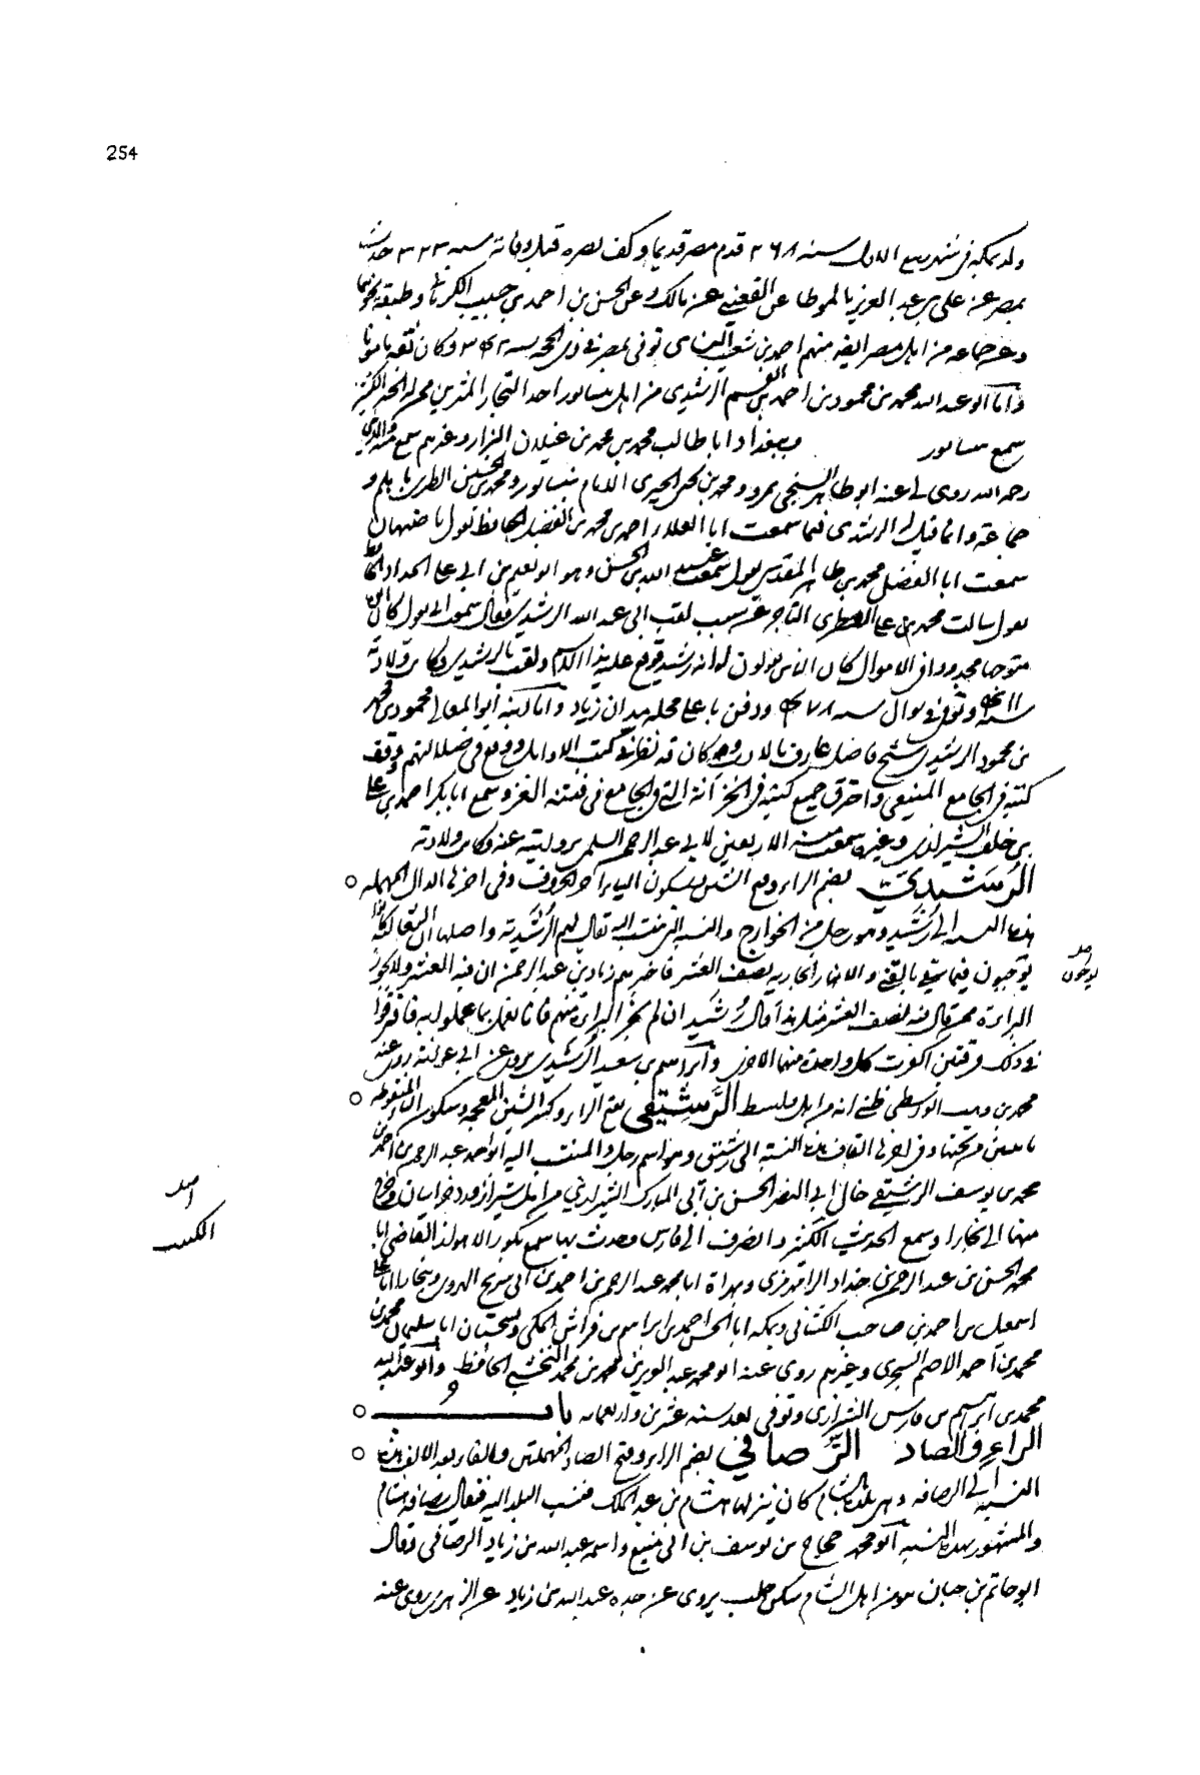 254
ولد بمكة في شهر ربيع الاول سنة ٢٦٨ قدم مصر قديما وكف بصره قبل وفاته سنة ٣٣٣ حدث
بمصر عن علي بن عبد العزيز بالموطا عن القعنبي عن مالك وعن الحسن بن احمد بن حبيب الكرماني وطبقة نحوهما
وعن جماعة من اهل مصر ايضا منهم احمد بن شعيب النساى توفى بمصر في ذى الحجة سنة وكان ثقة مامونا
واما ابو عبد الله محمد بن محمود بن احمد بن القسم الرشيدى من اهل نيسابور احد التجار المثرين
سمع بنيسابور وببغداد ابا طالب محمد بن محمد بن غيلان البزار وغيرهم سمع منه والدي
رحمه الله روى لي عنه ابو طاهر السنجى بمرو ومحمد بن الحيرى الامام بنيسابور ومحمد بن الحسين الطبرى بابلم و
جماعة وانما قيل له الرشيدى فيما سمعت ابا العلاء احمد بن محمد بن الفضل الحافظ يقول باصبهان
سمعت ابا الفضل محمد بن طاهر المقدسي يقول سمعت عبيد الله بن الحسن وهو ابو نعيم بن ابي علي الحداد الحافظ
يقول سالت محمد بن علي التاجر عن سبب لقب ابى عبد الله الرشيدى فقال سمعت ابي يقول كان ابن
محمود في الاموال كان الناس يقولون له انه رشيد فوقع عليه هذا الاسم ولقب بالرشيدى وكان ولادته
سنة وتوفى في شوال سنة ودفن باعلى محلة ميدان زياد واما ابنه ابو المعالي محمود بن محمد
بن محمود الرشيدى شيخ فاضل عارف بالادب وكان قد نظر في كتب الاوايل ووقع في ضلالتهم ووقف
كتبه في الجامع المنيعي واحترق جميع كتبه في الخزانة التي في الجامع في فتنة الغز وسمع ابا بكر احمد بن علي
بن خلف الشيرازي وغيره سمعت منه الاربعين لابي عبد الرحمن السلمي بروايته عنه وكان ولادته
الرُشَيدي بضم الراء وفتح الشين وسكون الياء اخر الحروف وفي اخرها الدال المهملة ○
هذه النسبة الى رُشَيد وهو رجل من الخوارج والفرقة التي تنتسب اليه يقال لهم الرُشَيدية واصلهم ان الثعالبة كانوا
يوجبون فيما سقي بالقنى والانهار الجارية نصف العشر فاخبرهم زياد بن عبد الرحمن ان فيه العشر ولا يجوز
البراءة ممن قال فيه نصف العشر قبل هذا فقال رُشَيد ان لم تجز البراءة منهم فانا نعمل بما عملوا به فافترقوا
في ذلك فرقتين اكفرت كل واحدة منهما الاخرى وابراهيم بن سعيد الرُشيدي يروى عن ابي عوانة روى عنه
محمد بن وهب الواسطي ظني انه من اهل واسط الرَشِيقي بفتح الراء وكسر الشين المعجمة وسكون الياء المنقوطة ○
باثنتين من تحتها وفي اخرها القاف هذه النسبة الى رشيق وهو اسم رجل والمنتسب اليه ابو احمد عبد الرحمن بن احمد بن
محمد بن يوسف الرشيقي خال ابي النضر الحسن بن ابى المبارك الشيرازي من اهل شيراز ورد خراسان وخرج
منها الى بخارا وسمع الحديث الكثير وانصرف الى فارس وحدث بها سمع بكور الاهواز القاضى ابا
محمد الحسن بن عبد الرحمن بن خلاد الرامهرمزى وبهراة ابا محمد عبد الرحمن بن احمد بن ابي شريح الهروى وببخارا ابا علي
اسمعيل بن احمد بن حاجب الكشانى وبمكة ابا الحسن احمد بن ابراهيم بن فراس المكي وبسجستان ابا سليمان محمد بن
محمد بن احمد الاصم السجزى وغيرهم روى عنه ابو محمد عبد العزيز بن محمد بن محمد النخشبي الحافظ وابو عبد الله
محمد بن ابراهيم بن فارس الشيرازى وتوفى بعد سنة عشرين واربعمائة باب ○
الراء والصاد الرُّصافي بضم الراء وفتح الصاد المهملتين والفاء بعد الالف هذه ○
النسبة الى الرصافة وهي بلدة بالشام كان ينزلها هشام بن عبد الملك فنسب البلد اليه فيقال رصافة هشام
والمشهور بهذه النسبة ابو محمد حجاج بن يوسف بن ابى منيع واسمه عبيد الله بن زياد الرصافى وقال
ابو حاتم بن حبان هو من اهل الشام سكن حلب يروى عن جده عبيد الله بن زياد عن الزهري روى عنه
صد
يوخذون
اصل
الكتب